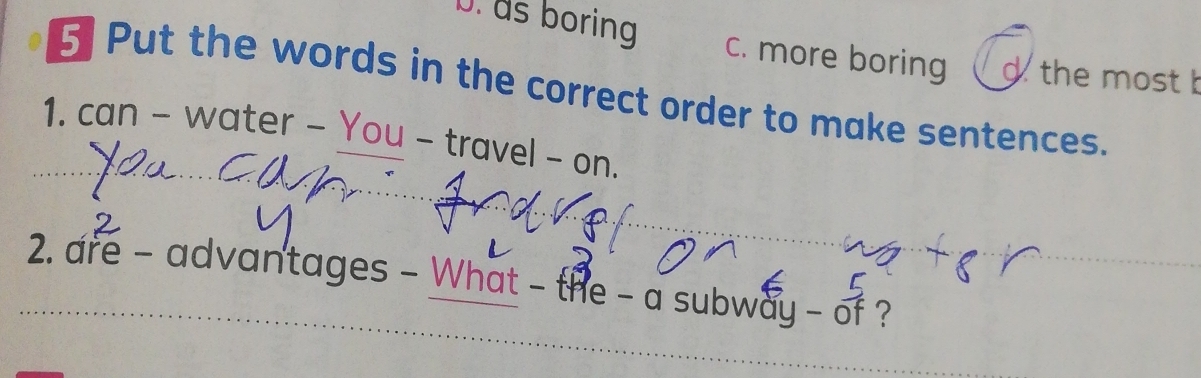 b. as boring
c. more boring d. the most b
5 Put the words in the correct order to make sentences.
1. can – water – You – travel – on.
You can travel on water
2 4 1 3 6 5
2. are – advantages – What – the – a subway – of ?